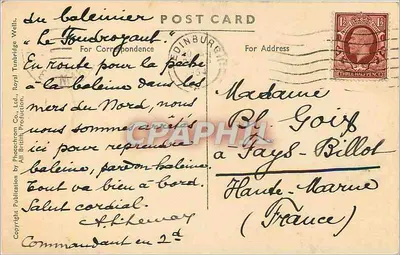 POST CARD
For Correspondence
For Address
du baleinier
"Le Foudroyant."
En route pour la pêche
à la baleine dans les
mers du Nord, nous
nous sommes arrêtés
ici pour reprendre
baleine, pardon haleine.
Tout va bien à bord.
Salut cordial.
Commandant en 2d
EDINBURGH
THREE HALF PENCE
Madame
Bl. Goix
à Pays-Billot
Haute-Marne
(France)
Copyright Publication by Photochrom Co., Ltd., Royal Tunbridge Wells.
All British Production.
CPAPHIL